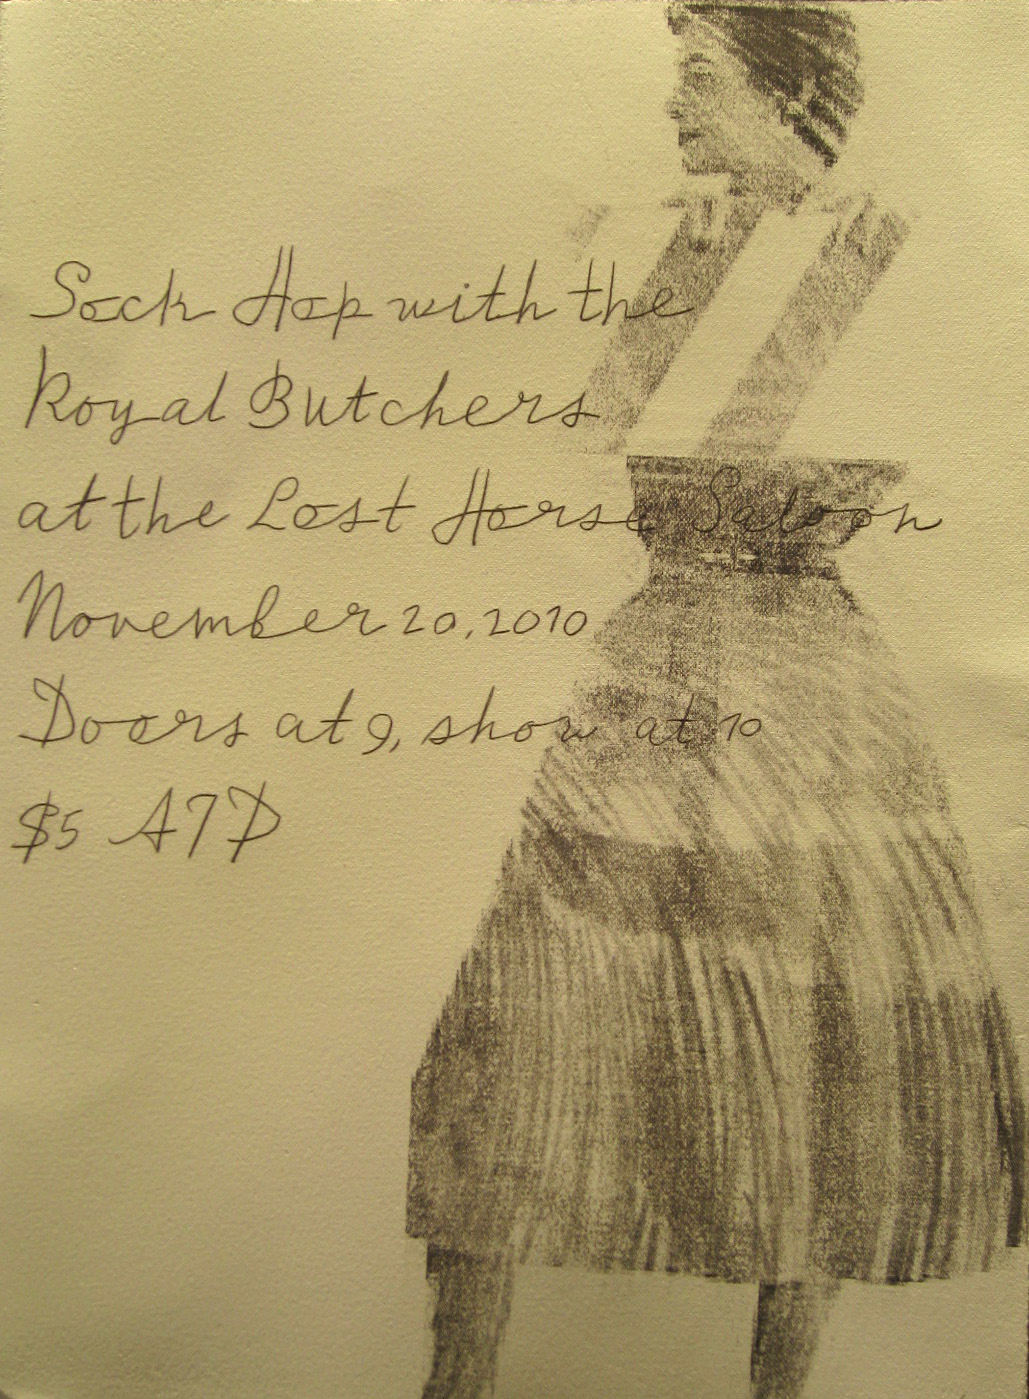 Sock Hop with the
Royal Butchers
at the Lost Horse Saloon
November 20, 2010
Doors at 9, show at 10
$5 ATD